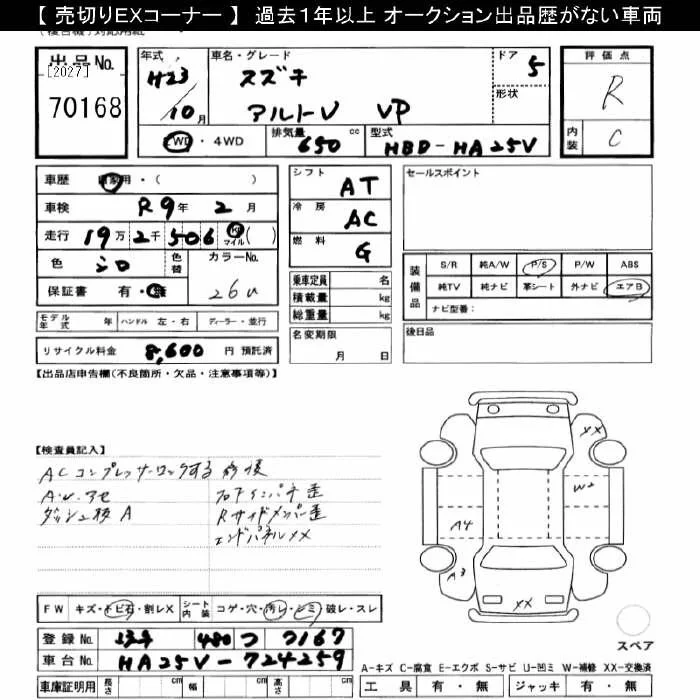 【 売切りEXコーナー 】 過去1年以上 オークション出品歴がない車両
出品No.
[2027]
70168
年式 H23 / 10 月
車名・グレード スズキ アルトV VP
ドア 5
形状
2WD ・ 4WD
排気量 650 cc
型式 HBD-HA25V
評価点
R
内装 C
車歴 自家用 ・( )
車検 R9 年 2 月
走行 19 万 2 千 506 km マイル ( )
色 シロ 色替 カラーNo. 26U
保証書 有 ・ 無
モデル年式 年 ハンドル 左・右 ディーラー・並行
リサイクル料金 8,600 円 預託済
シフト AT
冷房 AC
燃料 G
乗車定員 名
積載量 kg
総重量 kg
名変期限 月 日
セールスポイント
装備品
S/R 純A/W P/S P/W ABS
純TV 純ナビ 革シート 外ナビ エアB
ナビ型番:
後日品
【出品店申告欄(不良箇所・欠品・注意事項等)】
【検査員記入】
ACコンプレッサーロックする 修復
ダッシュ板 A Rサイドメンバー歪
エンドパネルXX
XX
W2
A4
A3
XX
スペア
FW キズ・トビ石・割レX シート内装 コゲ・穴・汚レ・シミ・破レ・スレ
登録No. 480 つ 7167
車台No. HA25V-724259
車庫証明用 長さ cm 幅 cm 高さ cm
A-キズ C-腐食 E-エクボ S-サビ U-凹ミ W-補修 XX-交換済
工具 有・無 ジャッキ 有・無